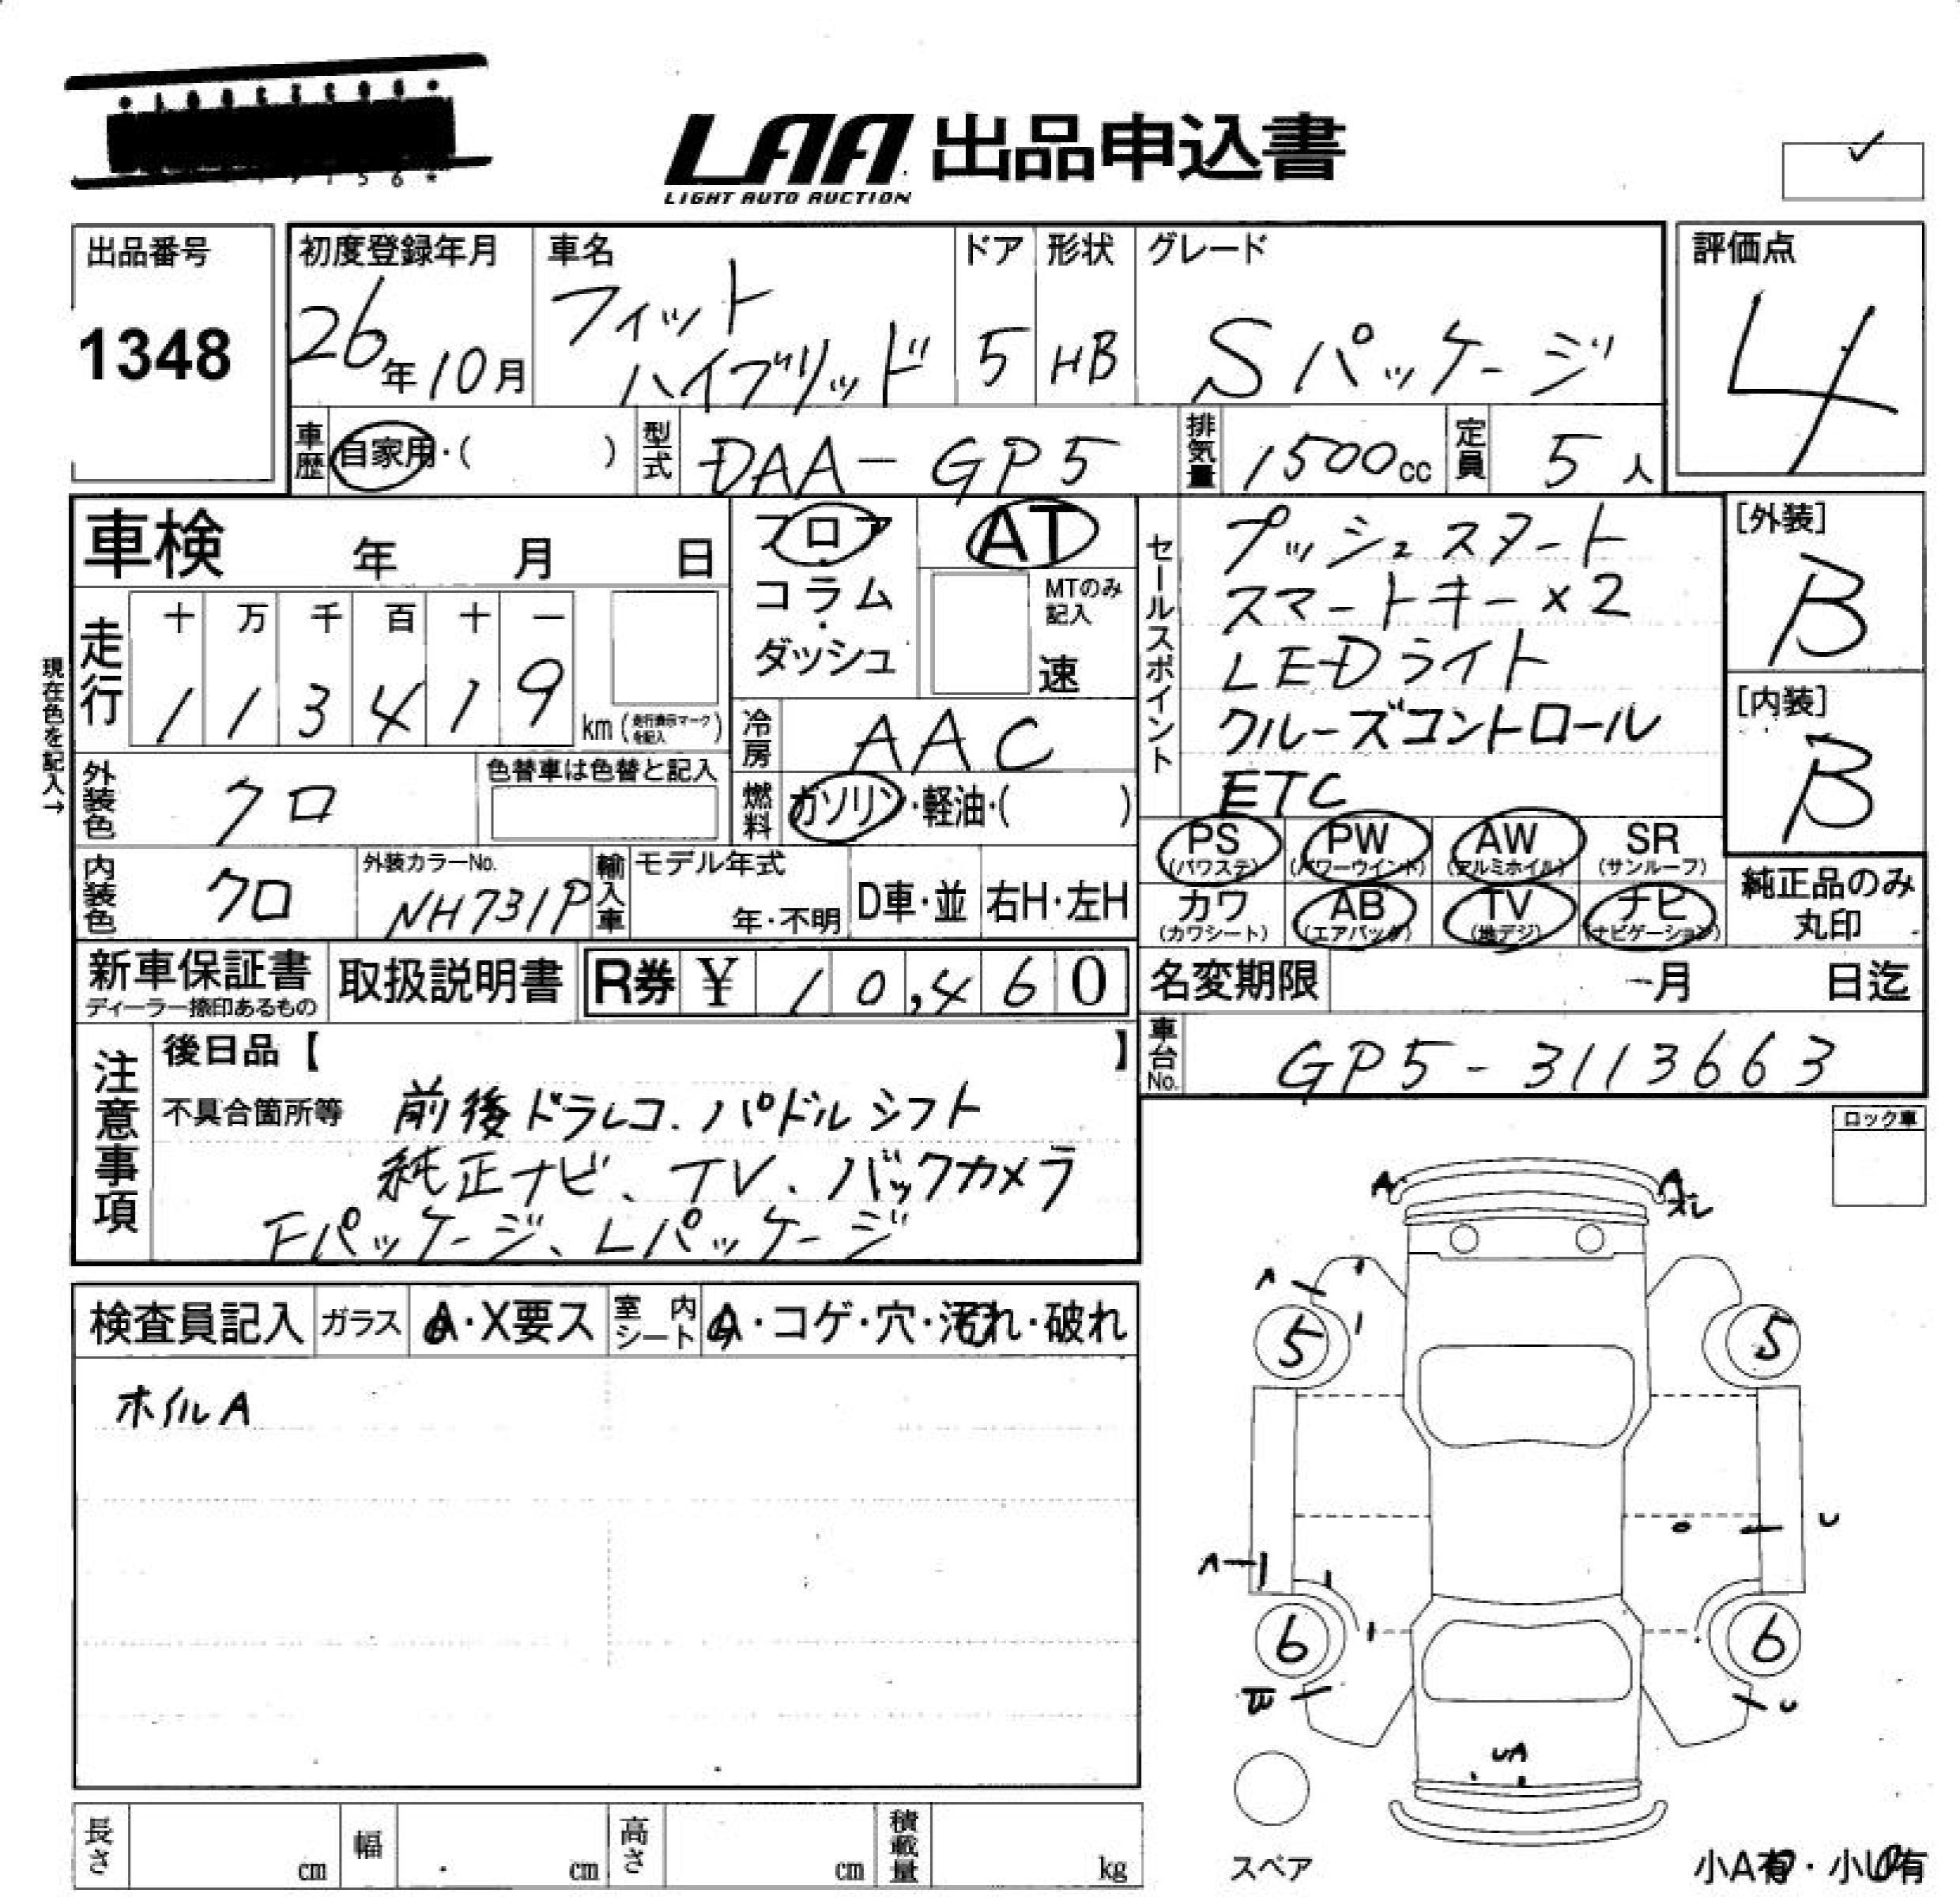 LAA 出品申込書
LIGHT AUTO AUCTION
出品番号
1348
初度登録年月
26年10月
車名
フィット
ハイブリッド
ドア
5
形状
HB
グレード
Sパッケージ
評価点
4
車歴 自家用・( )
型式 DAA-GP5
排気量 1500cc
定員 5人
車検 年 月 日
フロア
・
コラム
・
ダッシュ
AT
MTのみ
記入
速
セールスポイント
プッシュスタート
スマートキー×2
LEDライト
クルーズコントロール
ETC
[外装]
B
[内装]
B
現在色を記入→
走行
十 万 千 百 十 一
1 1 3 4 1 9
km (走行表示マークを記入)
冷房 AAC
燃料 ガソリン・軽油・( )
外装色 クロ
色替車は色替と記入
内装色 クロ
外装カラーNo.
NH731P
輸入車
モデル年式
年・不明
D車・並
右H・左H
PS
(パワステ)
PW
(パワーウインド)
AW
(アルミホイル)
SR
(サンルーフ)
カワ
(カワシート)
AB
(エアバック)
TV
(地デジ)
ナビ
(ナビゲーション)
純正品のみ
丸印
新車保証書
ディーラー捺印あるもの
取扱説明書
R券 ¥ 10,460
名変期限 月 日迄
車台No. GP5-3113663
注意事項
後日品【 】
不具合箇所等 前後ドラレコ、パドルシフト
純正ナビ、TV、バックカメラ
Fパッケージ、Lパッケージ
ロック車
検査員記入
ガラス
A・X要ス
室内シート
A・コゲ・穴・汚れ・破れ
ホイルA
A
A
ズレ
A
5
5
U
A
6
6
W
U
UA
スペア
小A有・小U有
長さ cm
幅 cm
高さ cm
積載量 kg